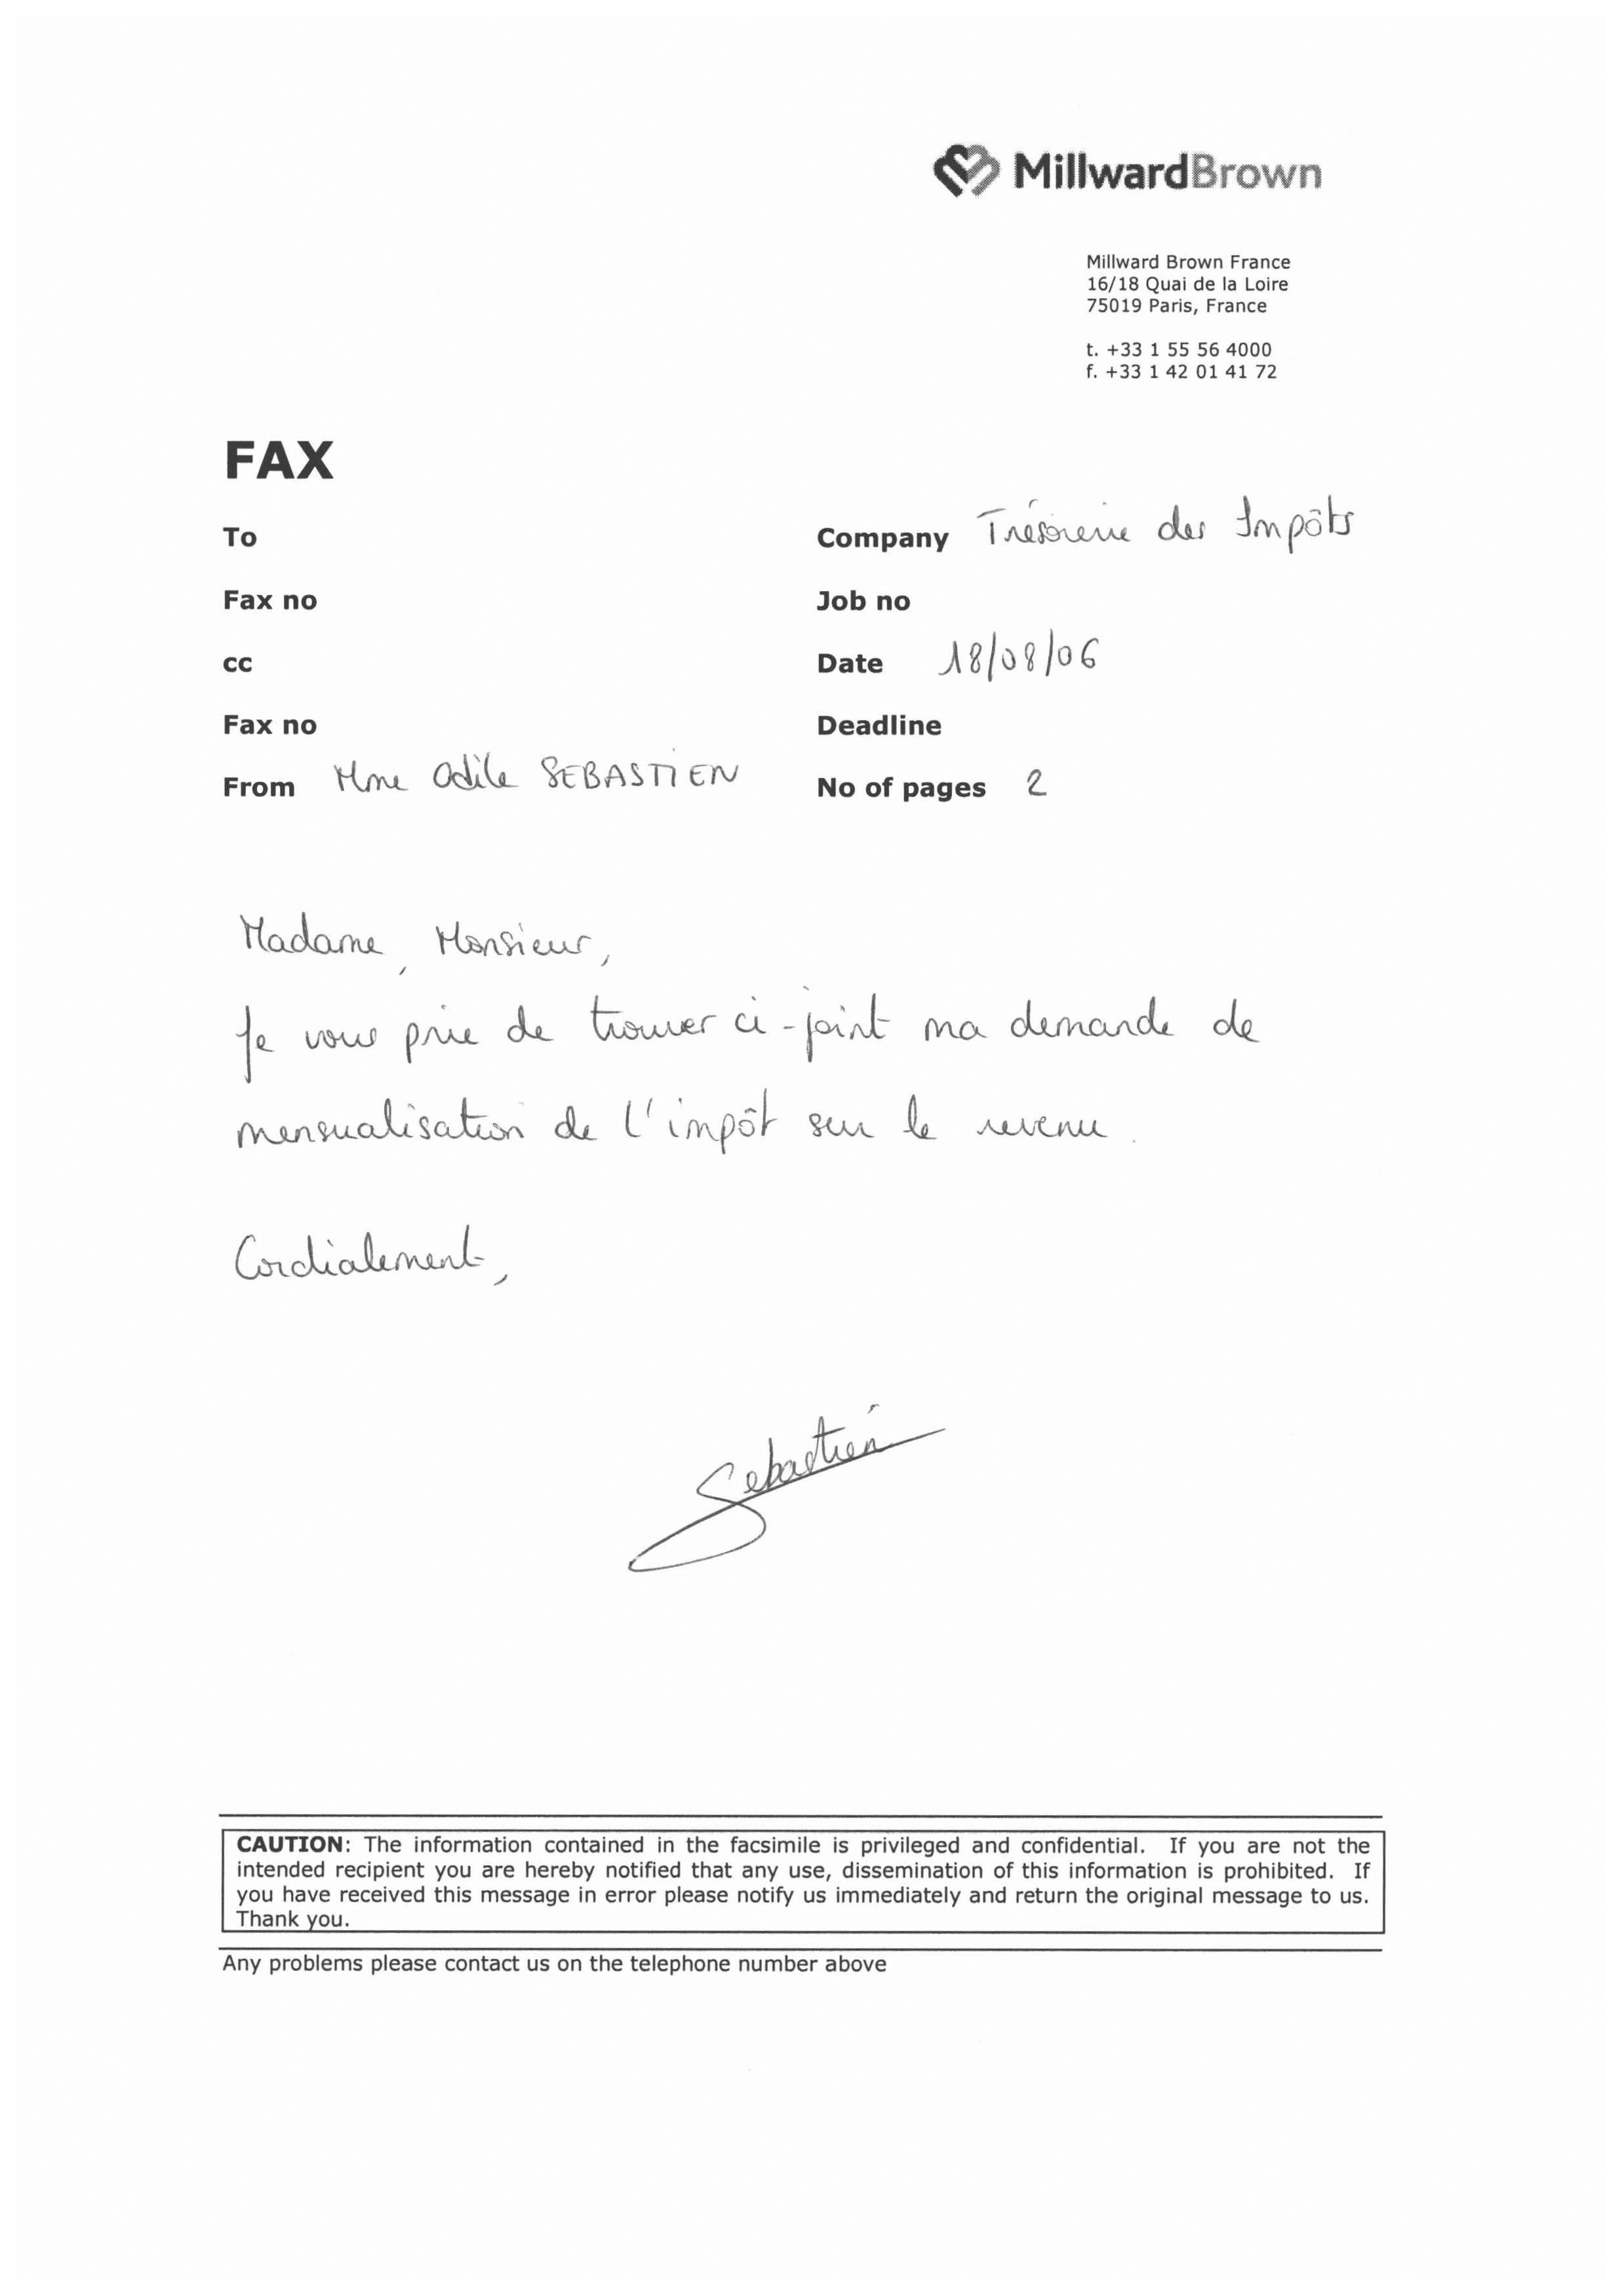 MillwardBrown
Millward Brown France
16/18 Quai de la Loire
75019 Paris, France
t. +33 1 55 56 4000
f. +33 1 42 01 41 72
FAX
To
Company Trésorerie des Impôts
Fax no
Job no
cc
Date 18/08/06
Fax no
Deadline
From Mme Odile SEBASTIEN
No of pages 2
Madame, Monsieur,
Je vous prie de trouver ci-joint ma demande de
mensualisation de l'impôt sur le revenu.
Cordialement,
Sebastien
CAUTION: The information contained in the facsimile is privileged and confidential. If you are not the
intended recipient you are hereby notified that any use, dissemination of this information is prohibited. If
you have received this message in error please notify us immediately and return the original message to us.
Thank you.
Any problems please contact us on the telephone number above